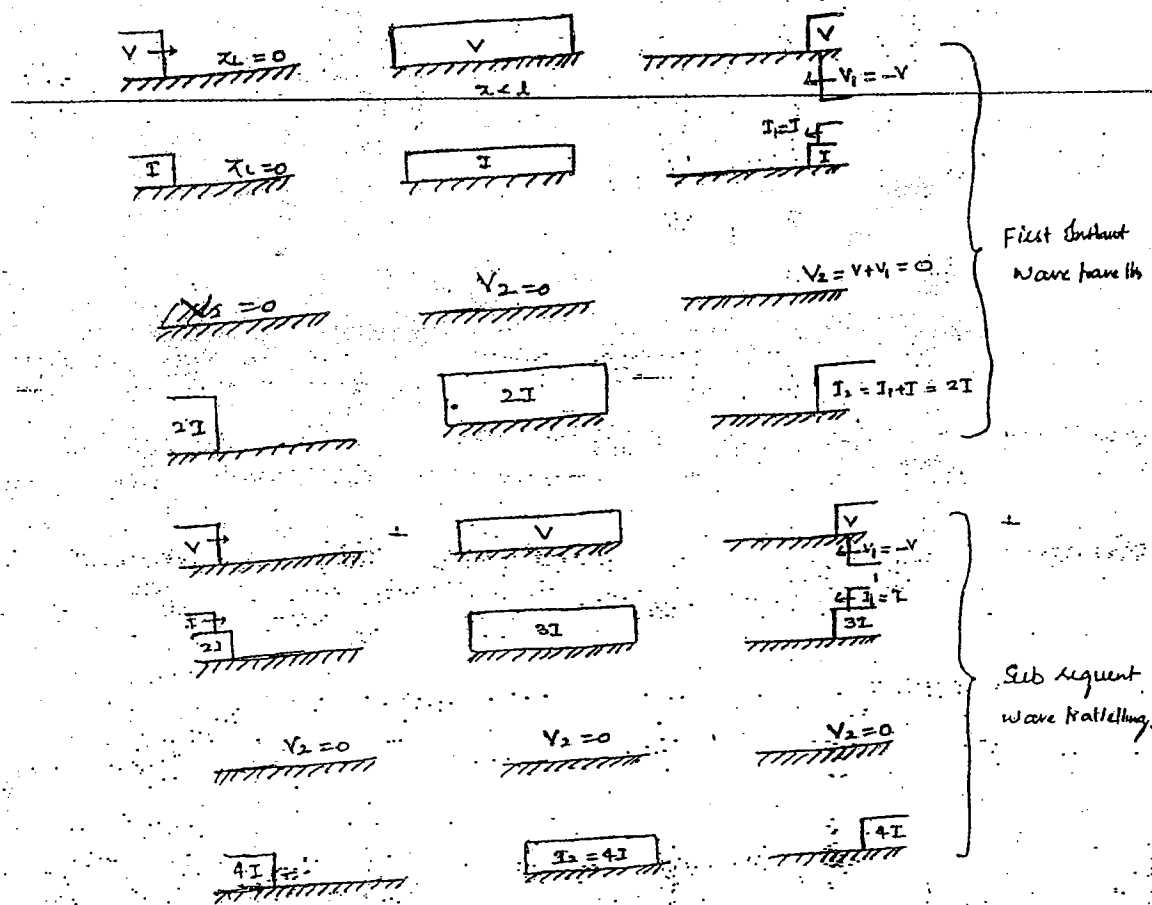 V → xL = 0 V V
x < l ← V₁ = -V
I xL = 0 I I₁ = I ← I
First Instant
wave travells
= 0 V₂ = 0 V₂ = V + V₁ = 0
2I 2I I₂ = I₁ + I = 2I
V → V V
← V₁ = -V
I → 2I 3I ← I₁ = I 3I
Sub sequent
wave travelling.
V₂ = 0 V₂ = 0 V₂ = 0
4I I₂ = 4I 4I